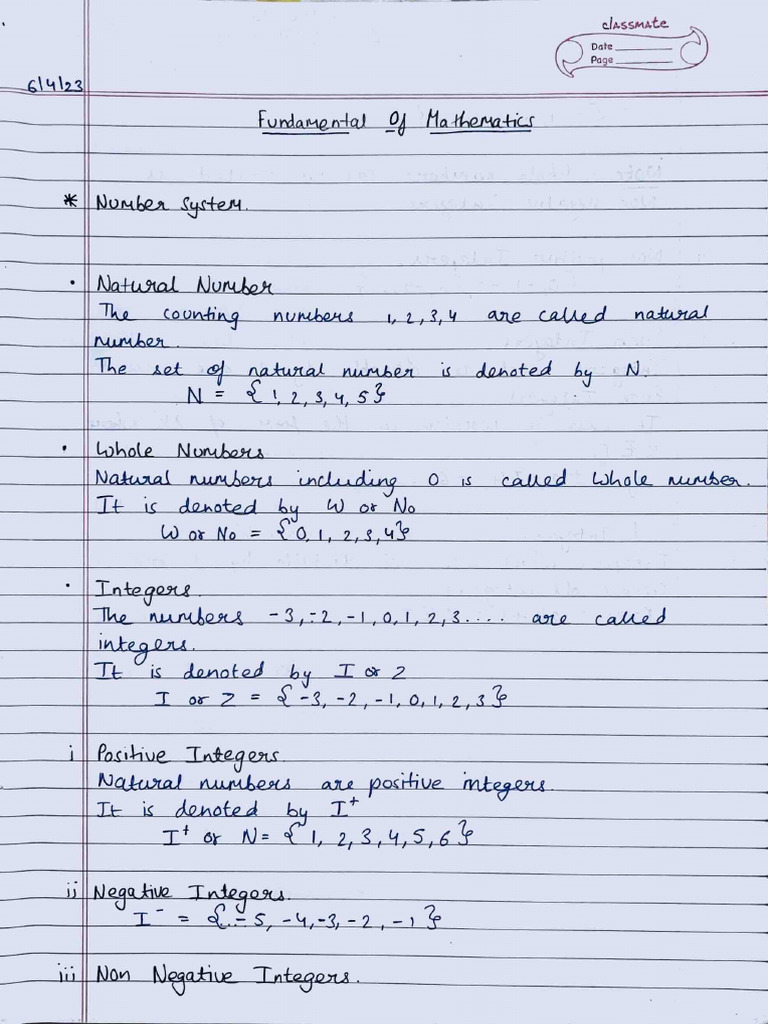 classmate
Date
Page
6/4/23
Fundamental Of Mathematics
* Number System.
• Natural Number
The counting numbers 1, 2, 3, 4 are called natural
number.
The set of natural number is denoted by N.
N = {1, 2, 3, 4, 5}
• Whole Numbers
Natural numbers including 0 is called Whole number.
It is denoted by W or No
W or No = {0, 1, 2, 3, 4}
• Integers.
The numbers -3, -2, -1, 0, 1, 2, 3.... are called
integers.
It is denoted by I or Z
I or Z = {-3, -2, -1, 0, 1, 2, 3}
i Positive Integers.
Natural numbers are positive integers.
It is denoted by I⁺
I⁺ or N = {1, 2, 3, 4, 5, 6}
ii Negative Integers.
I⁻ = {-5, -4, -3, -2, -1}
iii Non Negative Integers.